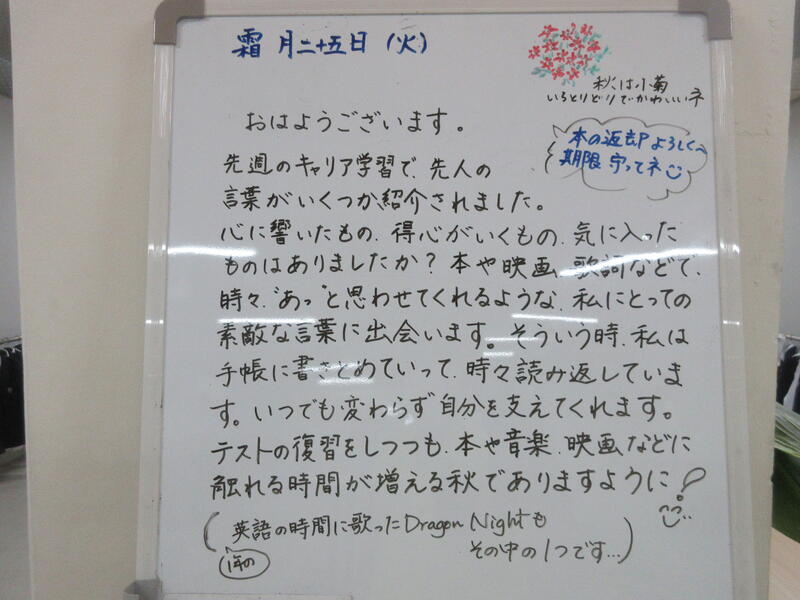 霜月二十五日（火）
秋は小菊
いろとりどりでかわいいネ
本の返却よろしく
期限守ってネ
おはようございます。
先週のキャリア学習で、先人の
言葉がいくつか紹介されました。
心に響いたもの、得心がいくもの、気に入った
ものはありましたか？本や映画、歌詞などで、
時々、"あっ"と思わせてくれるような、私にとっての
素敵な言葉に出会います。そういう時、私は
手帳に書きとめていって、時々読み返していま
す。いつでも変わらず自分を支えてくれます。
テストの復習をしつつも、本や音楽、映画などに
触れる時間が増える秋でありますように！
（英語の時間に歌ったDragon Nightも
1年の
その中の1つです…）